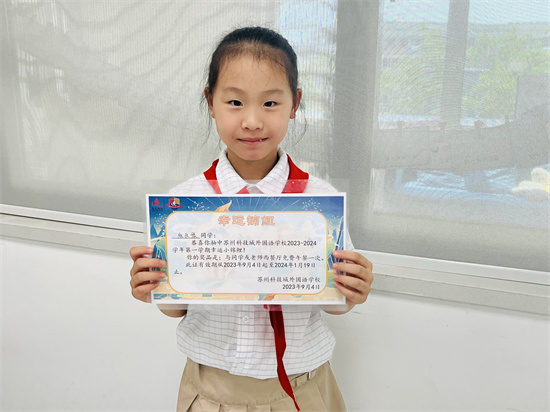 幸运锦鲤
同学:
恭喜你抽中苏州科技城外国语学校2023-2024
学年第一学期幸运小锦鲤!
你的奖品是:与同学或老师西餐厅免费午餐一次,
此证有效期从2023年9月4日起至2024年1月19日
止。
苏州科技城外国语学校
2023年9月4日